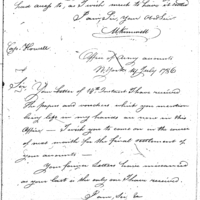 I am, Sir, Your
Capt. Howell
Office of Army accounts
New York 19 July 1786
Sir
Your Letter of 14th Instant I have received
The papers and vouchers which you mention
being left in my hands are now in this
Office — I wish you to come on in the course
of next month for the final settlement of
your accounts —
Your former Letters have miscarried
as your last is the only one I have received
I am, Sir